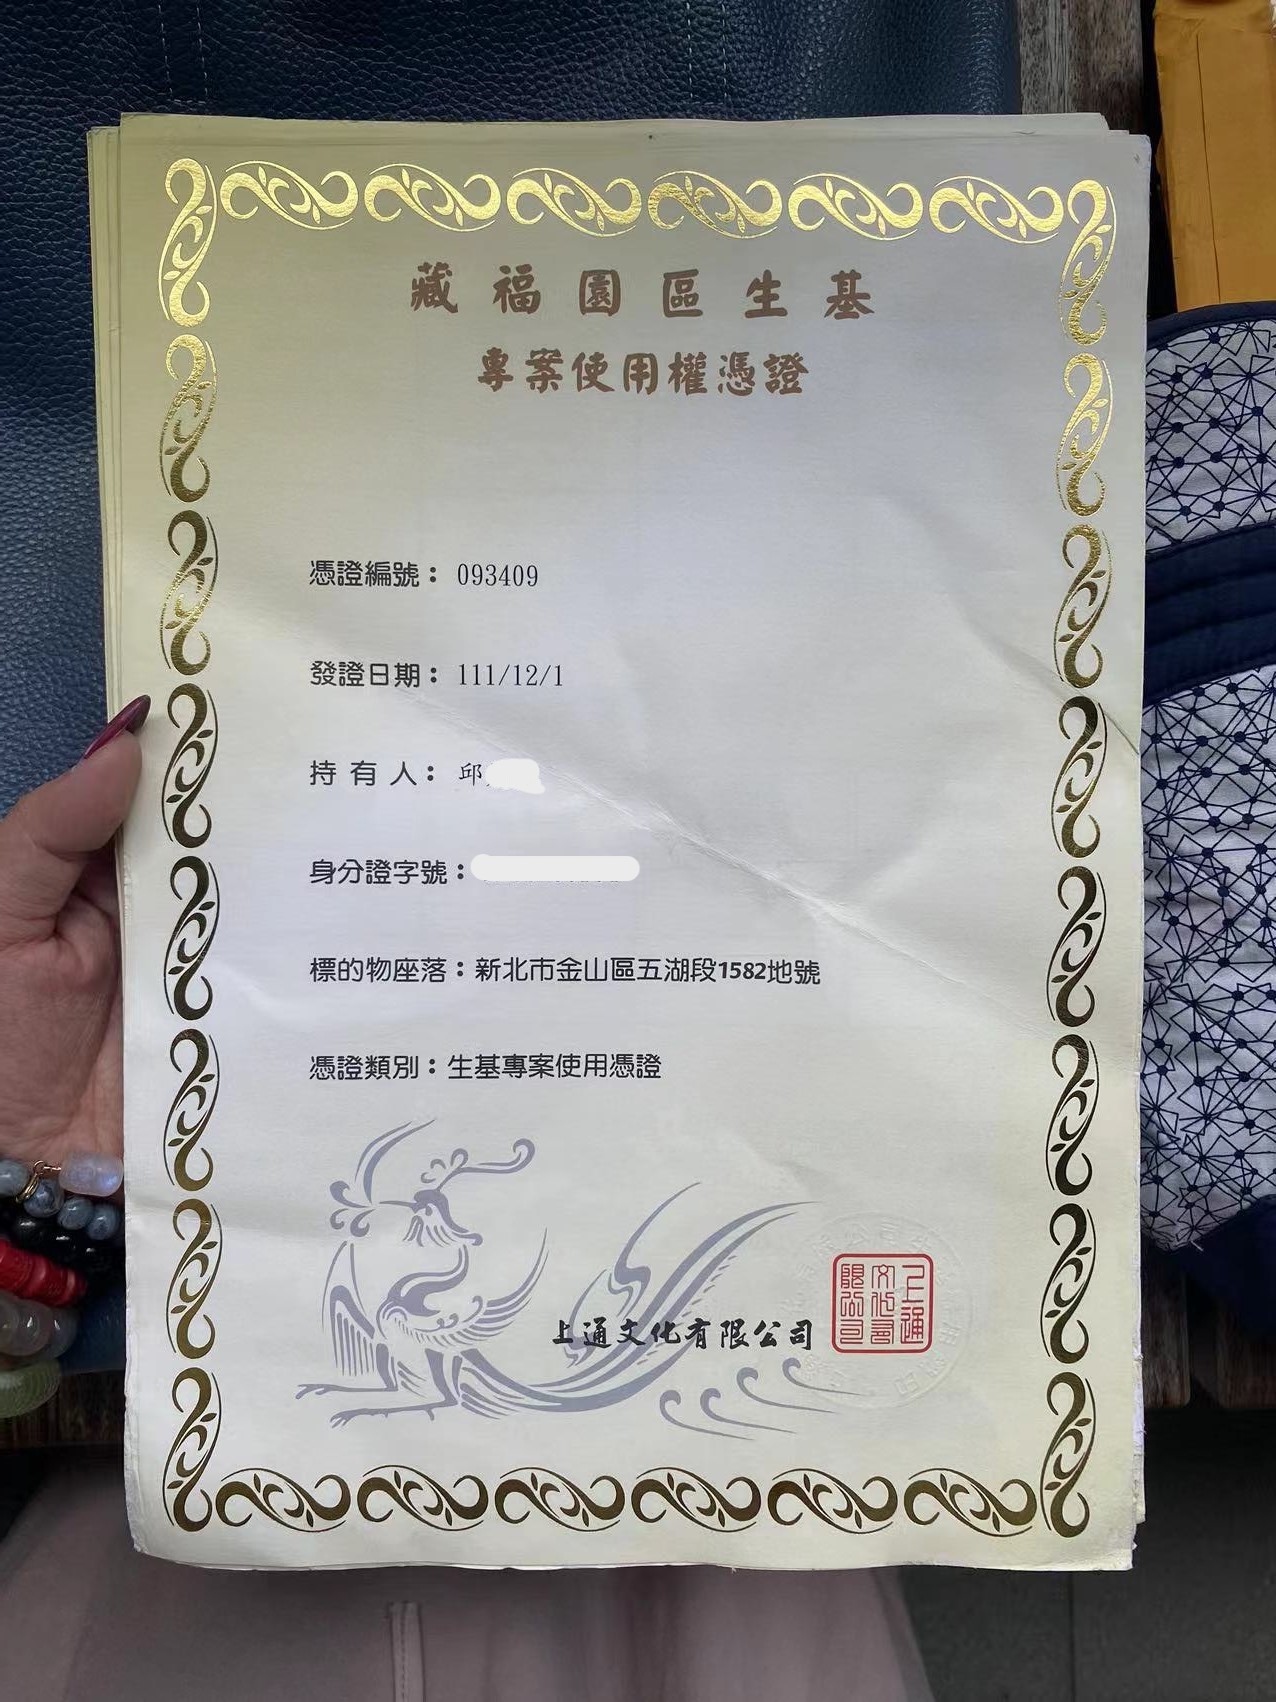 藏福園區生基
專案使用權憑證
憑證編號：093409
發證日期：111/12/1
持有人：邱
身分證字號：
標的物座落：新北市金山區五湖段1582地號
憑證類別：生基專案使用憑證
上通文化有限公司
上通文化有限公司